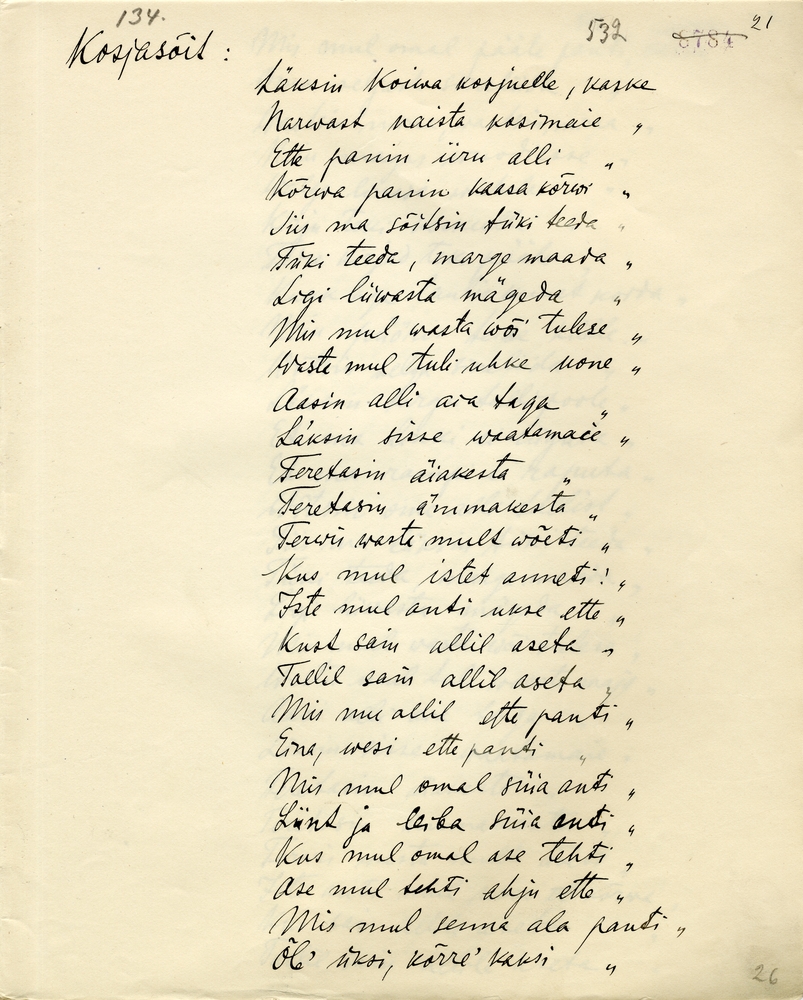 134.
532
8784
21
Kosjasõit :
Läksin Koiwa kosjuelle, kaske
Narwast naista kosimaie "
Ette panin üru alli "
Kõrwa panin kaasa kõrwi "
Siis ma sõitsin tüki teeda "
Tüki teeda, marge maada "
Ligi liiwasta mägeda "
Mis mul wasta wõi tulese "
Wasta mul tuli uhke hone "
Aasin alli aia taga "
Läksin sisse waatamaie "
Teretasin äiakesta "
Teretasin ämmakesta "
Terwis wasta mult wõeti "
Kus mul istet anneti! "
Iste mul anti ukse ette "
Kust sain allil aseta "
Tallil sain allil aseta "
Mis mu allil ette panti "
Eina, wesi ette panti "
Mis mul omal süia anti "
Liint ja leiba süia anti "
Kus mul omal ase tehti "
Ase mul tehti ahju ette "
Mis mul senna ala panti "
Õle' üksi, kõrre' kaksi "
26